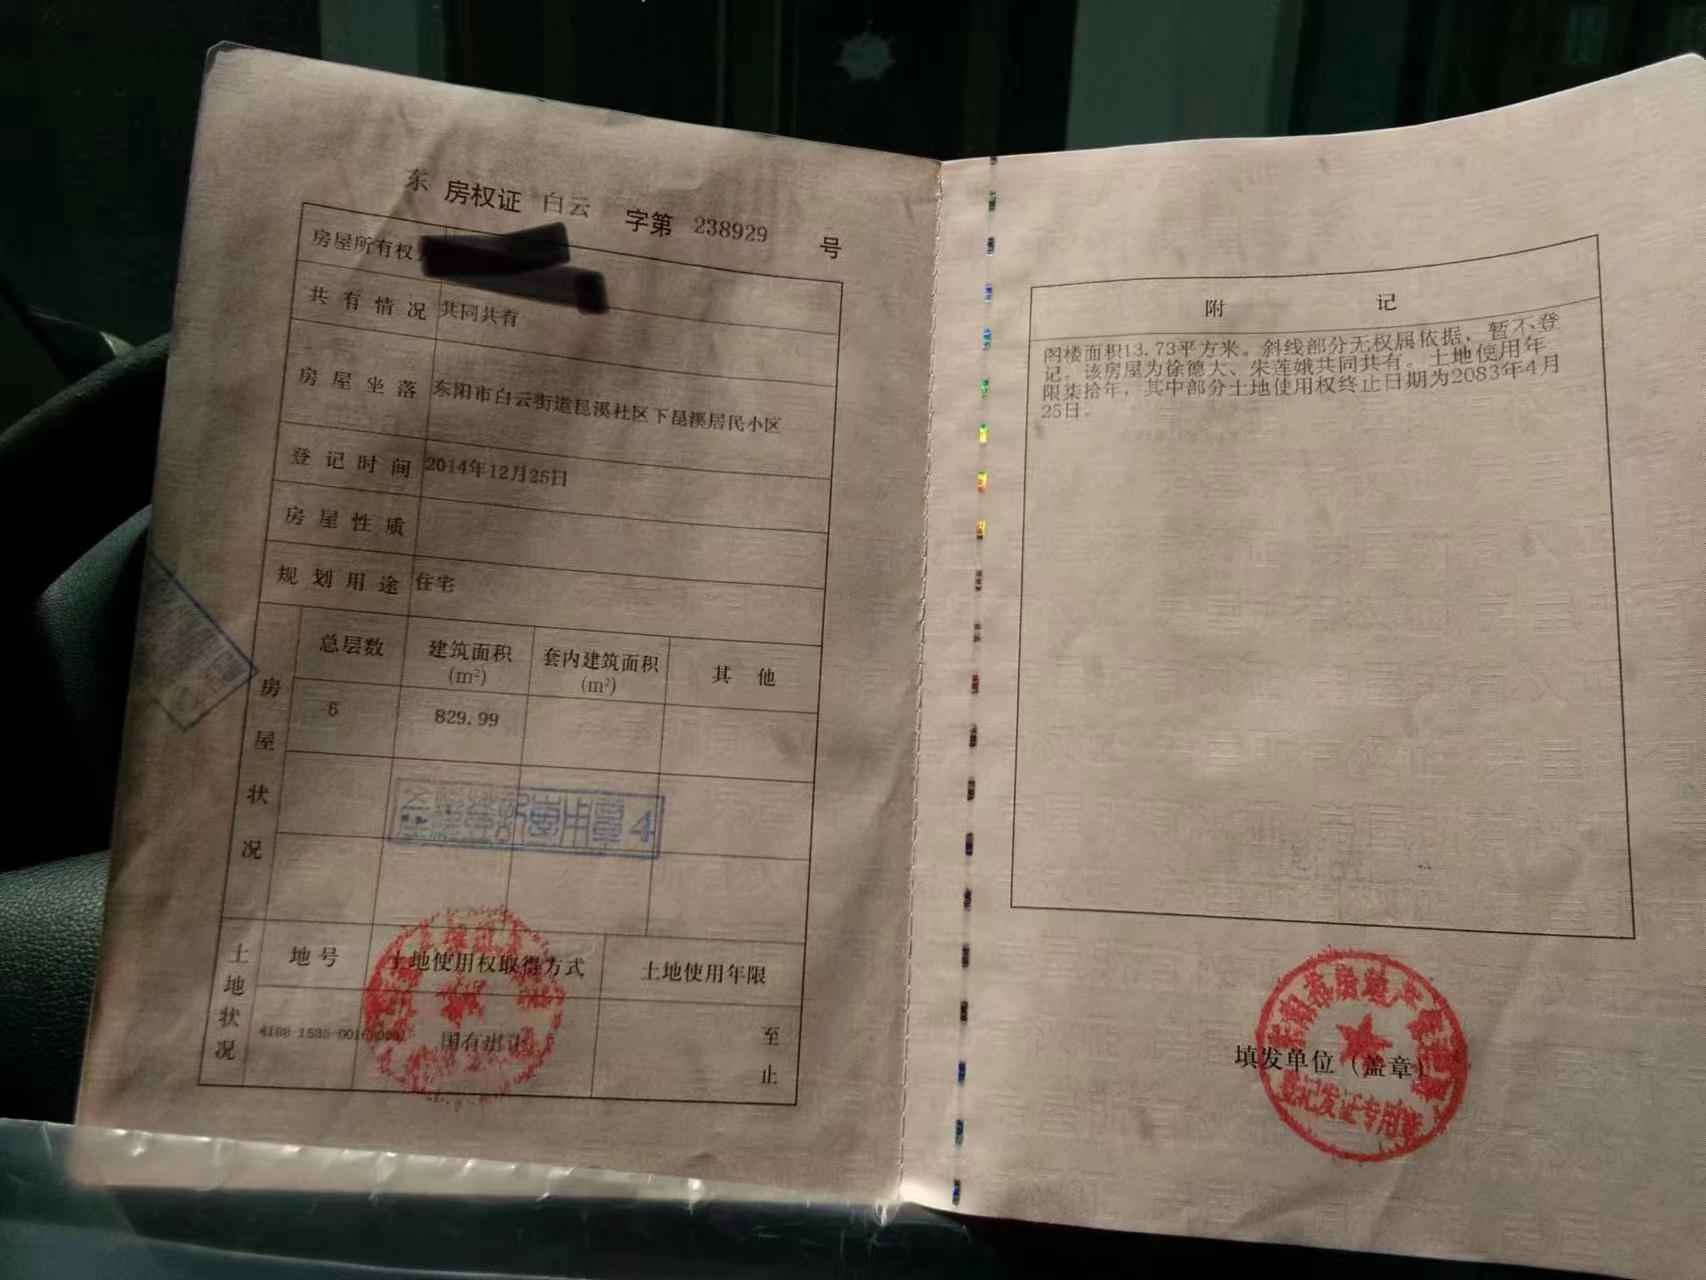 东 房权证 白云 字第 238929 号
房屋所有权
共有情况 共同共有
房屋坐落 东阳市白云街道昆溪社区下昆溪居民小区
登记时间 2014年12月25日
房屋性质
规划用途 住宅
房屋状况
总层数 建筑面积(m²) 套内建筑面积(m²) 其他
6 829.99
章4
土地状况
地号 土地使用权取得方式 土地使用年限
国有 至
止
附 记
阁楼面积13.73平方米。斜线部分无权属依据，暂不登
记。该房屋为徐德大、朱莲娥共同共有。土地使用年
限柒拾年，其中部分土地使用权终止日期为2083年4月
25日。
填发单位（盖章）
登记发证专用章